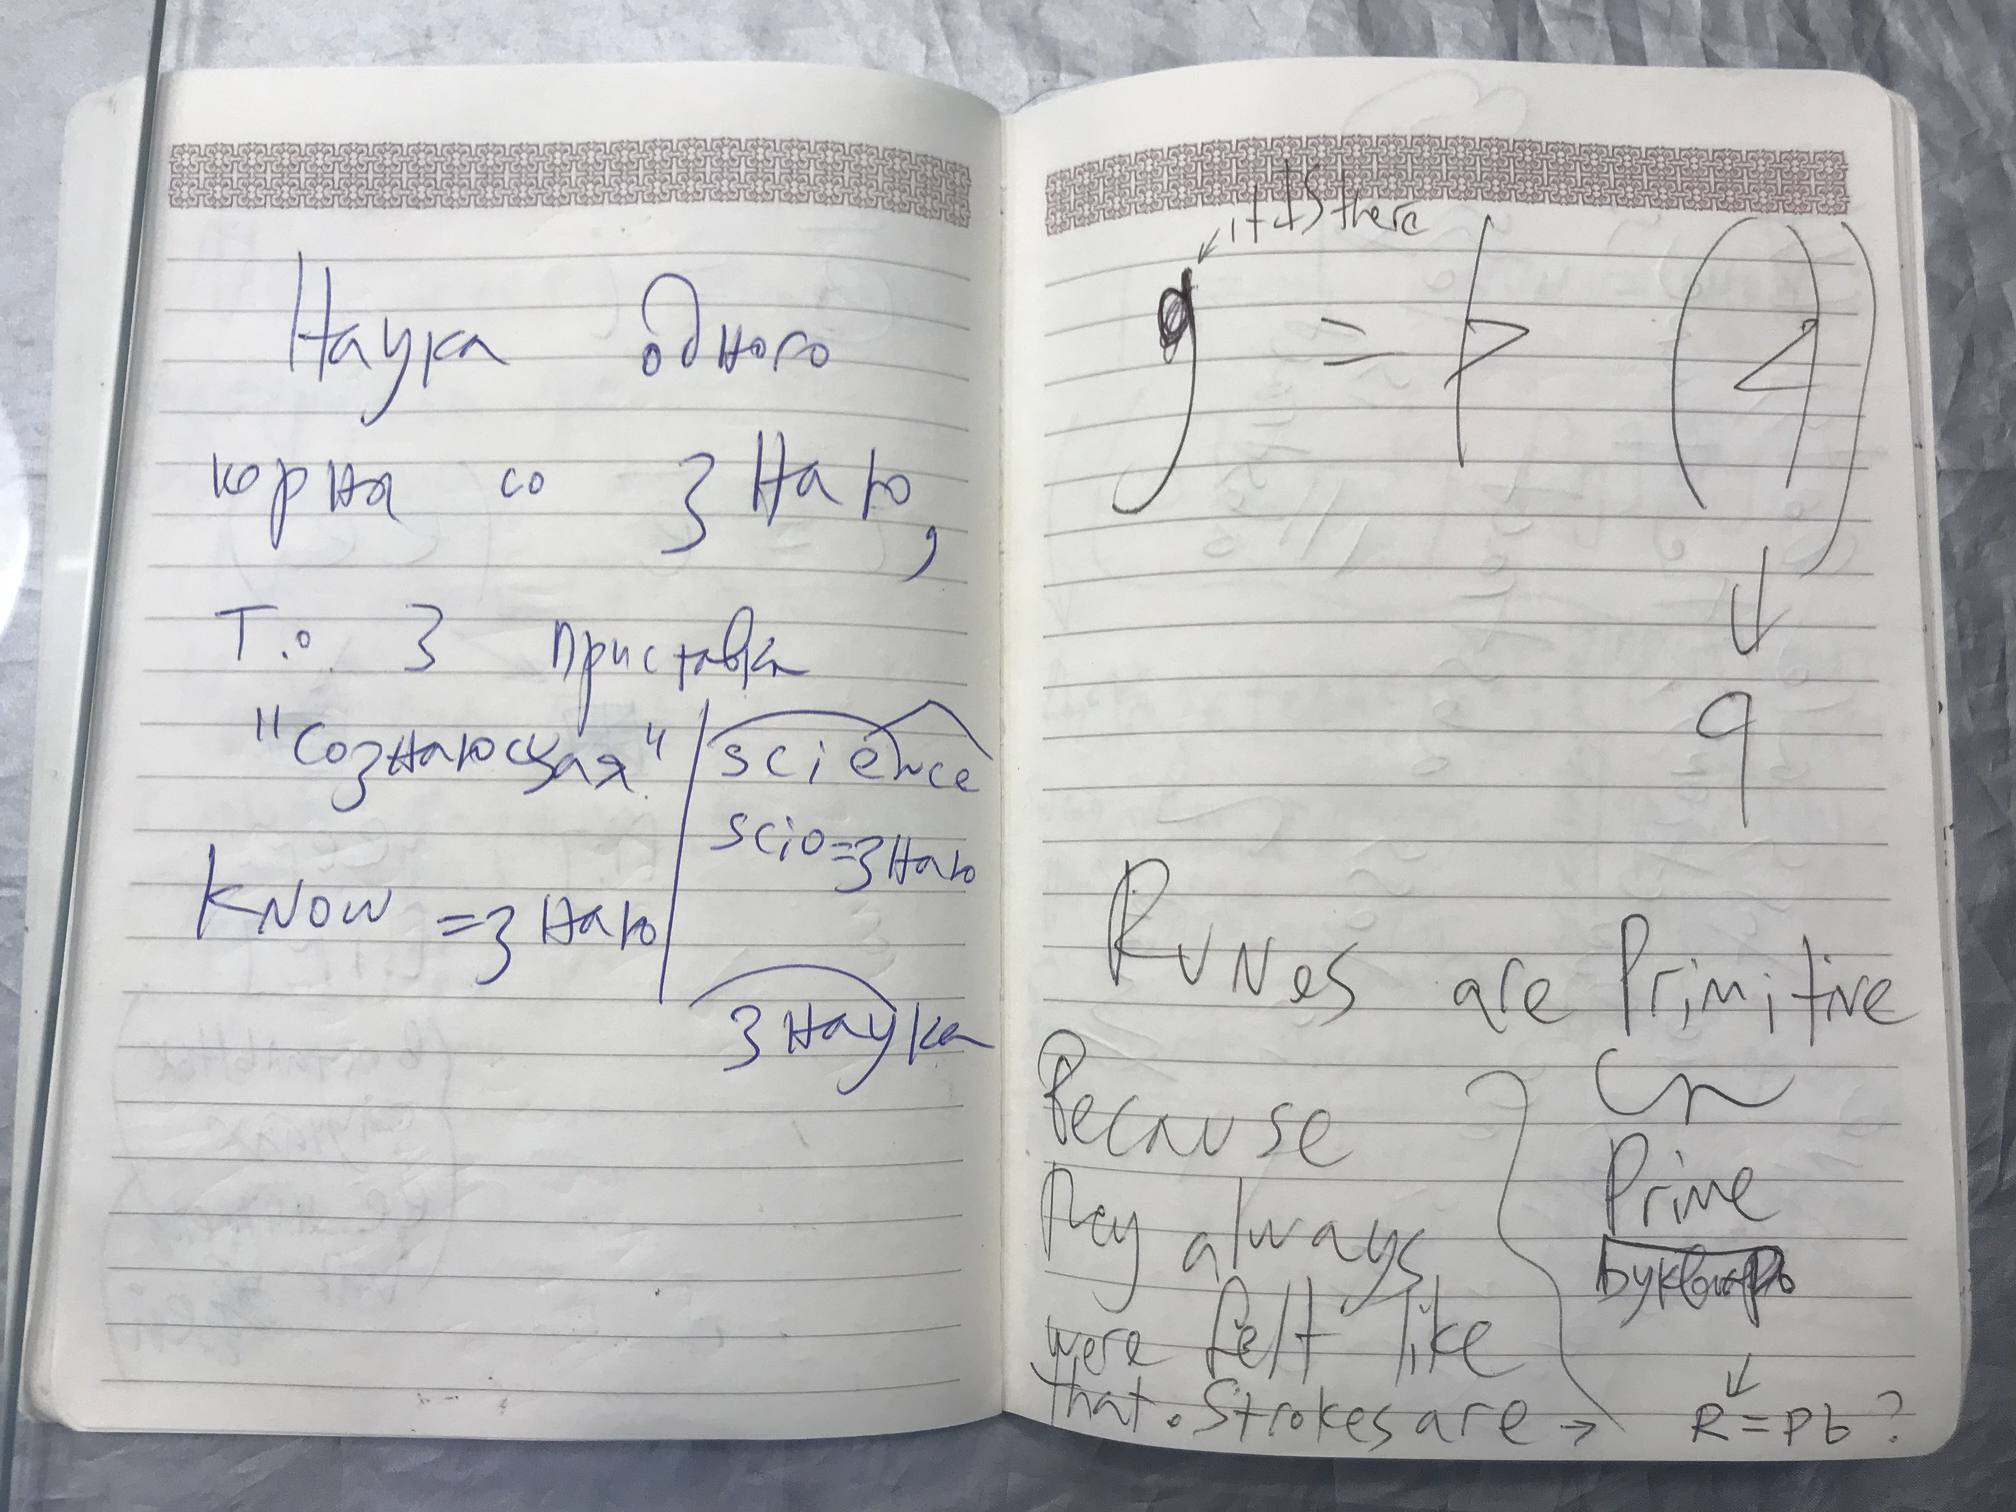 Наука одного
корня со знаю,
Т.о. з приставка
"сознающая"
science
scio=знаю
know = знаю
знаука
it IS there
g = (
q
Runes are Primitive
Because
Prime
they always
букварь
were felt like
that. Strokes are → R = Pb?